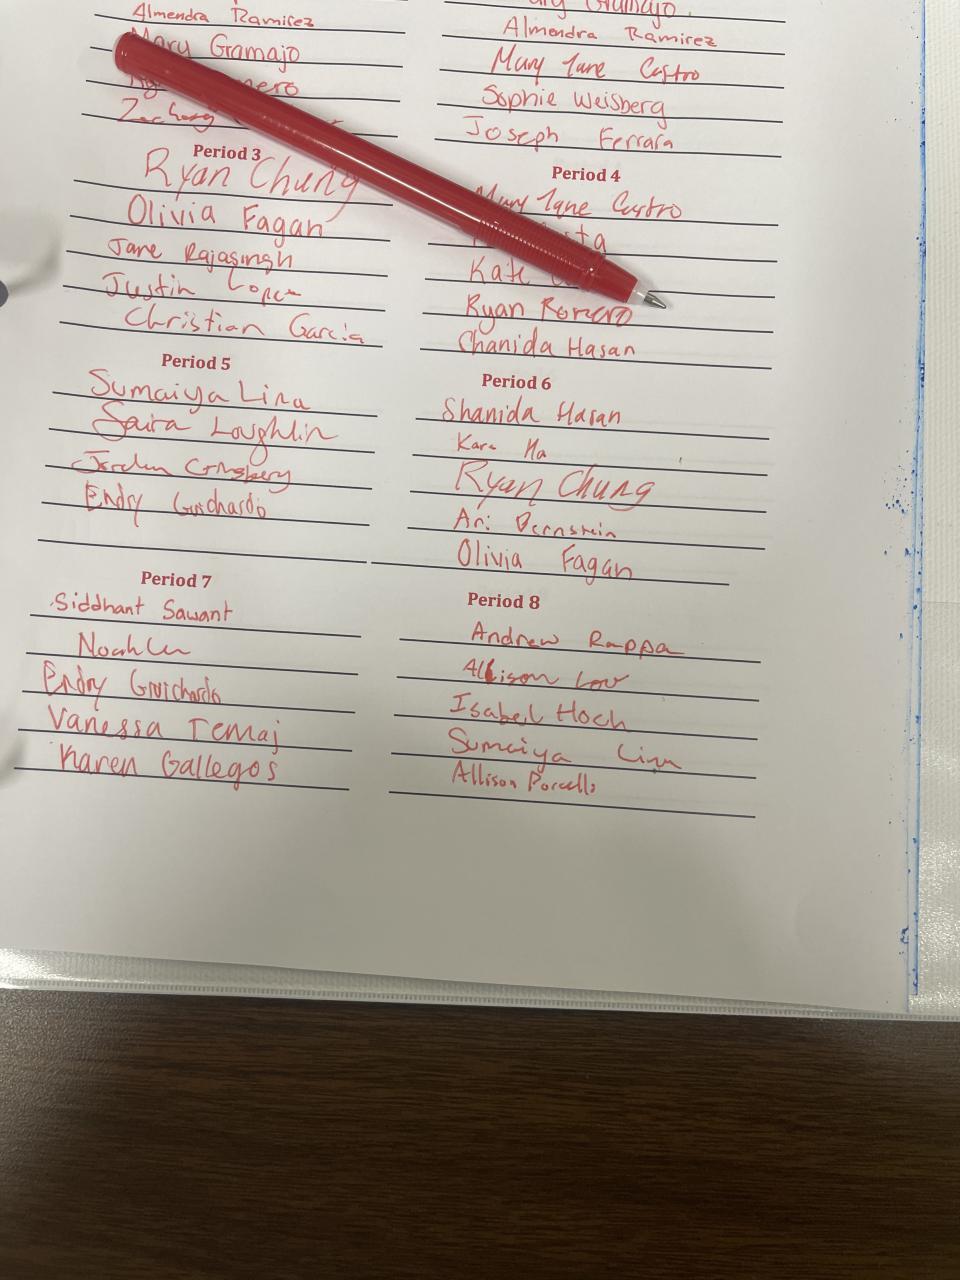 Almendra Ramirez
Mary Gramajo
Zachary
Gramajo
Almendra Ramirez
Mary Jane Castro
Sophie Weisberg
Joseph Ferrara
Period 3
Ryan Chung
Olivia Fagan
Jane Rajasingh
Justin Lopez
Christian Garcia
Period 4
Mary Jane Castro
Kate
Ryan Romero
Chanida Hasan
Period 5
Sumaiya Lina
Saira Loughlin
Endry Guichardo
Period 6
Shanida Hasan
Kara Ha
Ryan Chung
Ari Bernstein
Olivia Fagan
Period 7
Siddhant Sawant
Noah Lu
Endry Guichardo
Vanessa Temaj
Karen Gallegos
Period 8
Andrew Rappa
Allison Low
Isabel Hoch
Sumaiya Lina
Allison Porcello